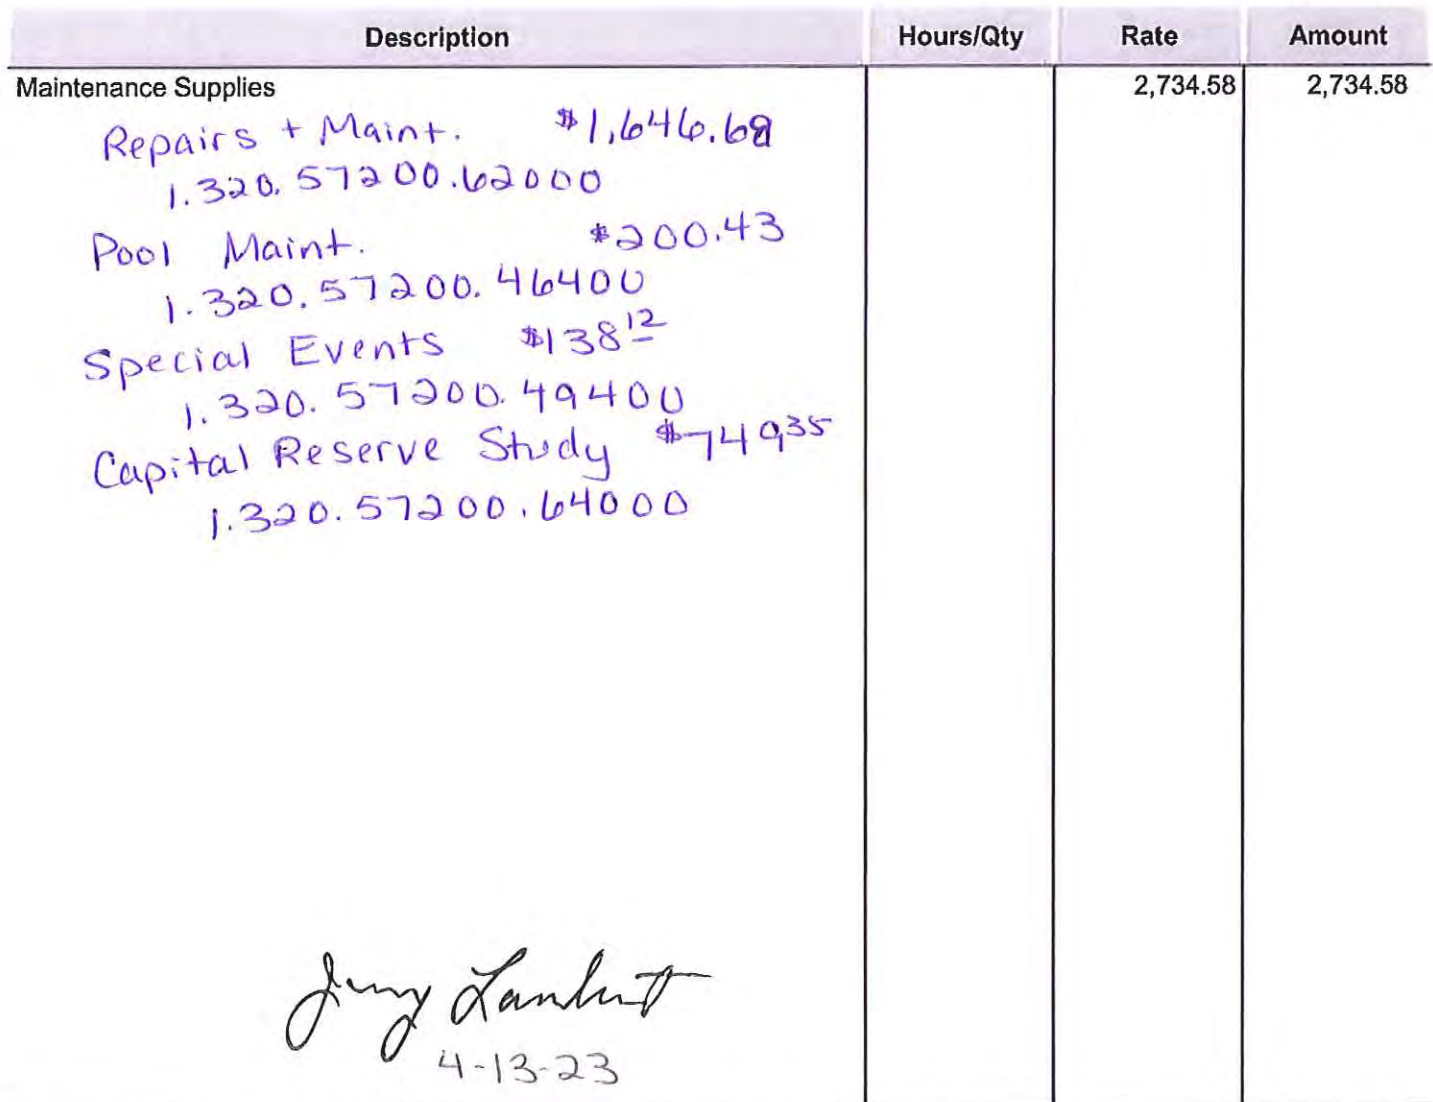 Description Hours/Qty Rate Amount
Maintenance Supplies 2,734.58 2,734.58
Repairs + Maint. $1,646.68
1.320.57200.62000
Pool Maint. $200.43
1.320.57200.46400
Special Events $138 12
1.320.57200.49400
Capital Reserve Study $749 35
1.320.57200.64000
Jerry Lambert
4-13-23